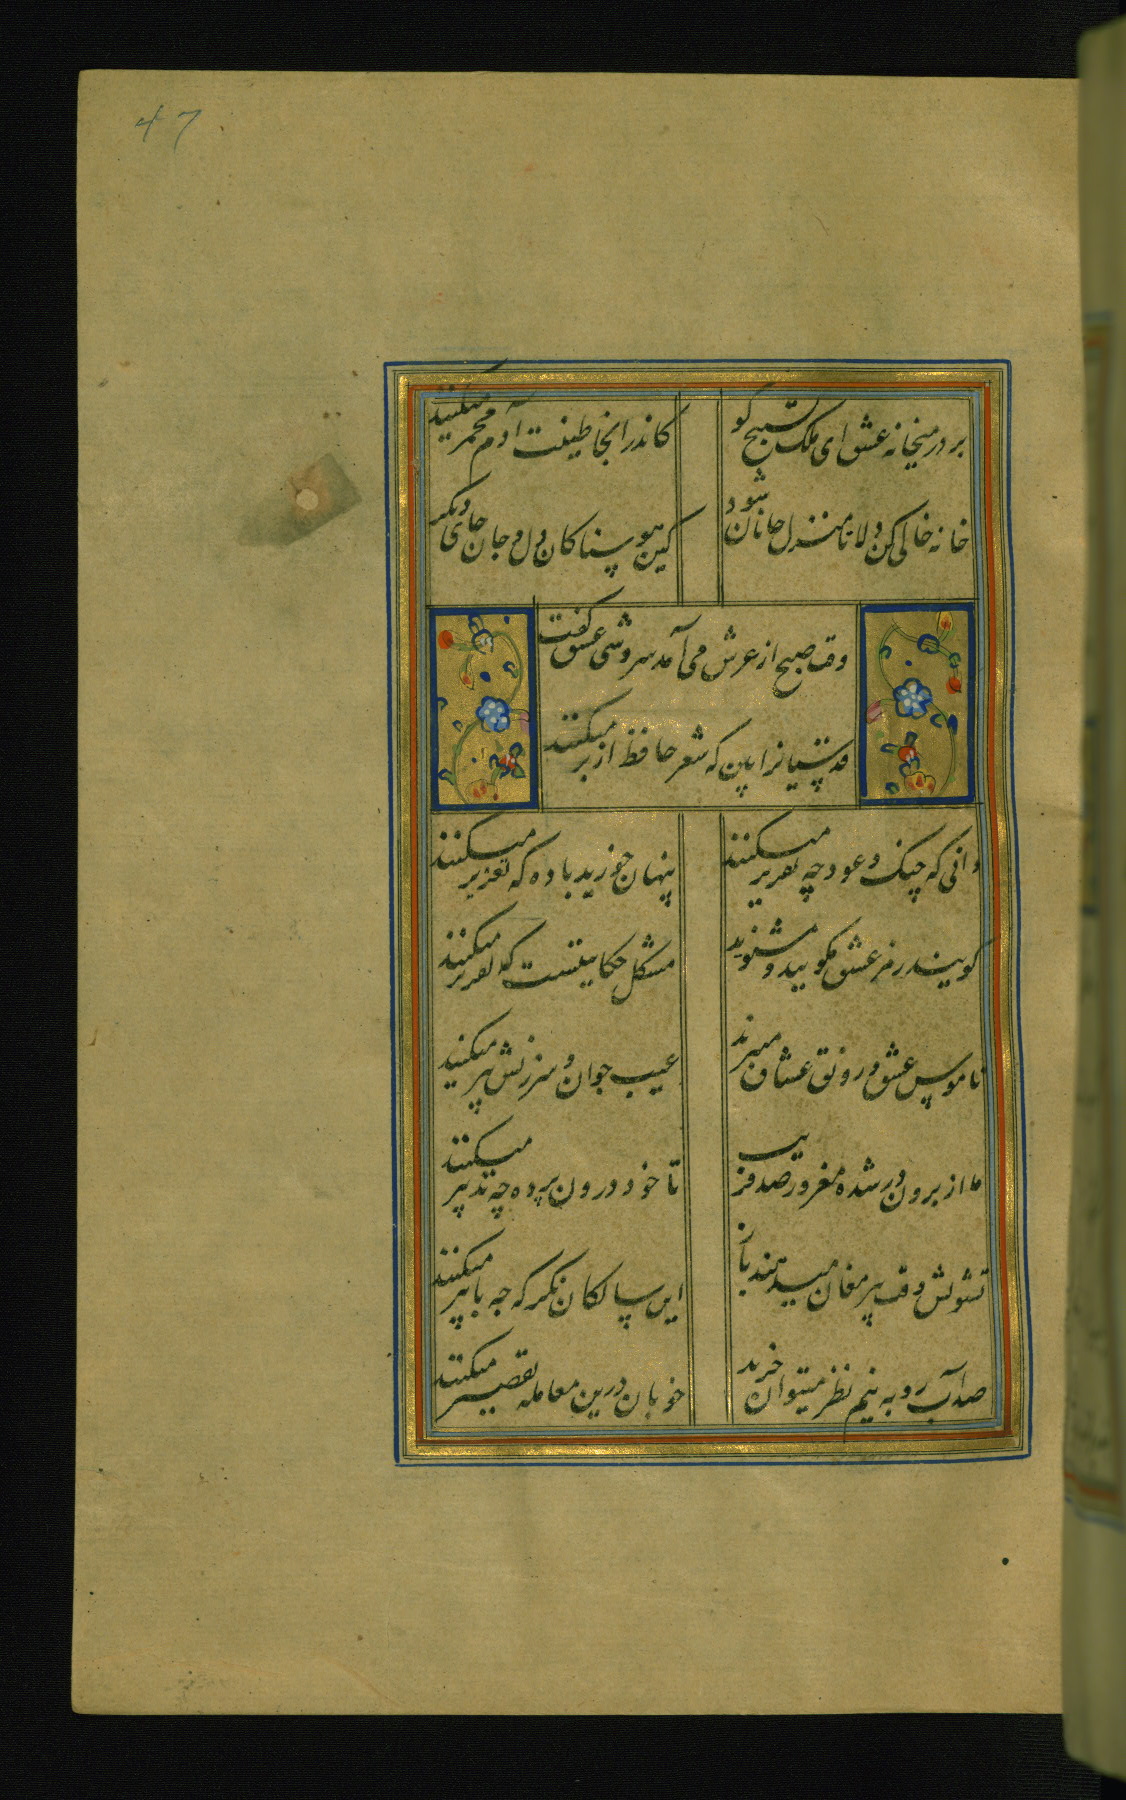 47
بر در میخانه عشق ای ملک تسبیح گو
کاندر انجا طینت آدم مخمر میکنند
خانه خالی کن دلا تا منزل جانان شود
کین هوسناکان دل و جان جای دیگر
وقت صبح از عرش می آمد سروشی عشق گفت
قدسیانرا بین که شعر حافظ از بر میکنند
دانی که چنگ و عود چه تقریر میکنند
پنهان خورید باده که تعزیر میکنند
گویند رمز عشق مگویید و مشنوید
مشکل حکایتیست که تقریر میکنند
ناموس عشق و رونق عشاق میبرند
عیب جوان و سرزنش پیر میکنند
ما از برون در شده مغرور صد فریب
تا خود درون پرده چه تدبیر میکنند
تشویش وقت پیر مغان میدهند باز
این سالکان نگر که چه با پیر میکنند
صد آب رو به نیم نظر میتوان خرید
خوبان درین معامله تقصیر میکنند